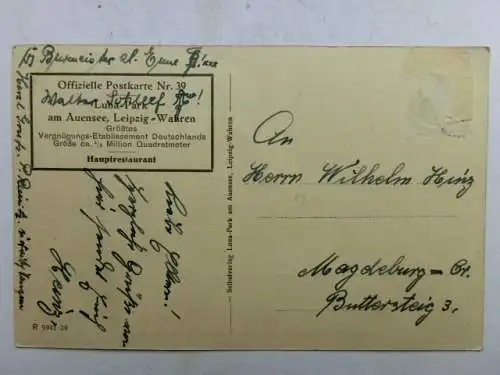 Offizielle Postkarte Nr. 39
Luna-Park
am Auensee, Leipzig-Wahren
Größtes
Vergnügungs-Etablissement Deutschlands
Größe ca. ¼ Million Quadratmeter
Hauptrestaurant
Walter
Liebe Eltern!
Herzlichst Grüße von
hier sendet Euch
Heinz
R 9941 28
Selbstverlag Luna-Park am Auensee, Leipzig-Wahren
An
Herrn Wilhelm Hinz
Magdeburg-Cr.
Buttersteig 3.